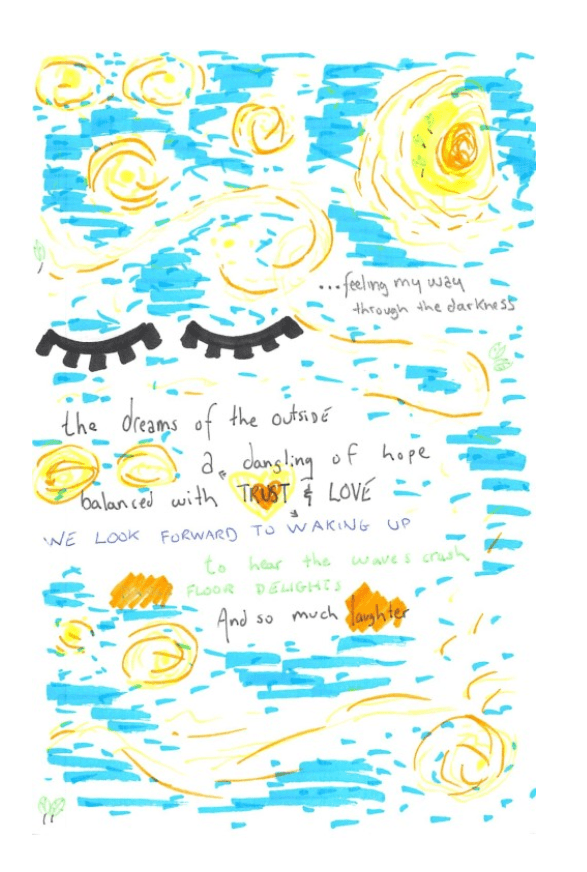 ...feeling my way
through the darkness
the dreams of the outside
a dangling of hope
balanced with TRUST & LOVE
WE LOOK FORWARD TO WAKING UP
to hear the waves crash
FLOOR DELIGHTS
And so much laughter